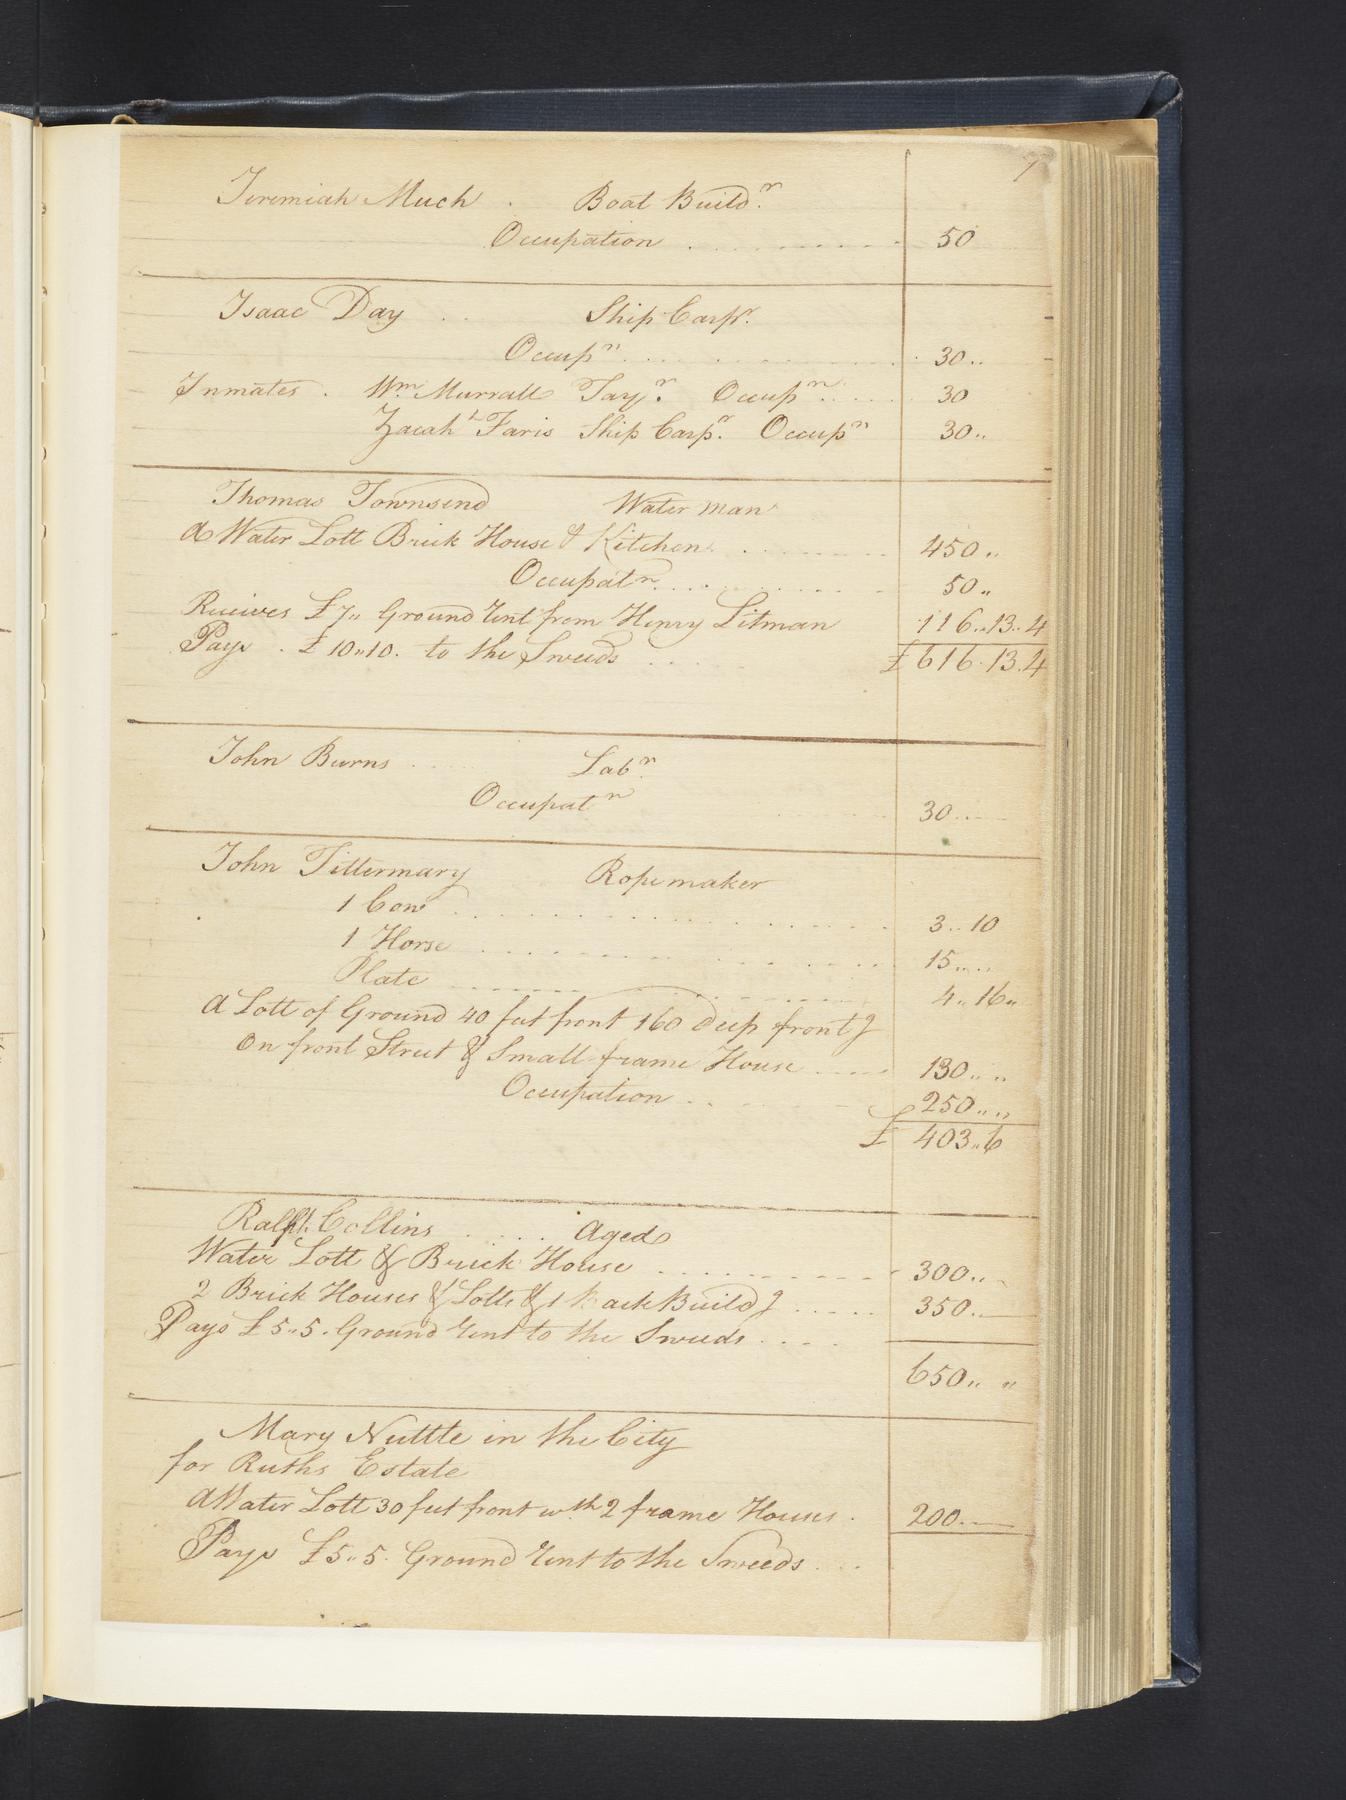 7
Jeremiah Much . Boat Build.r
Occupation . . . . . . . . . . 50
Isaac Day . . Ship Carpr.
Occupn . . . . . . . . . . . 30..
Inmates . Wm. Murrall Tayr. Occupn . . . . . 30
Zacah Faris Ship Carpr. Occupn 30..
Thomas Townsend Water man
A Water Lott Brick House & Kitchen . . . . . . . . 450..
Occupatn . . . . . . . . . . 50..
Recives £7,, Ground Rent from Henry Litman 116..13..4
Pays . £10,,10. to the Sweeds . . . . . £616.13.4
John Burns . . . . . Labr.
Occupatn . . . . . 30..
John Tittermary Ropemaker
1 Cow . . . . . . . . . . . . 3..10
1 Horse . . . . . . . . . . . 15,,..
Plate . . . . . . . . . . . 4,,16,,
A Lott of Ground 40 feet front 160 Deep front }
On front Street & Small frame House . . . . . 130,, ,,
Occupation . . . . . 250,, ,,
£ 403,,6
Ralph Collins . . . . . Aged
Water Lott & Brick House . . . . . . . . . 300..
2 Brick Houses & Lotts & 1 Back Build } . . . . . 350..
Pays £5,,5. Ground Rent to the Sweeds . . . .
650,, ,,
Mary Nuttle in the City
for Ruths Estate
A Water Lott 30 feet front wth. 2 frame Houses . 200..
Pays £5,,5. Ground Rent to the Sweeds . . .